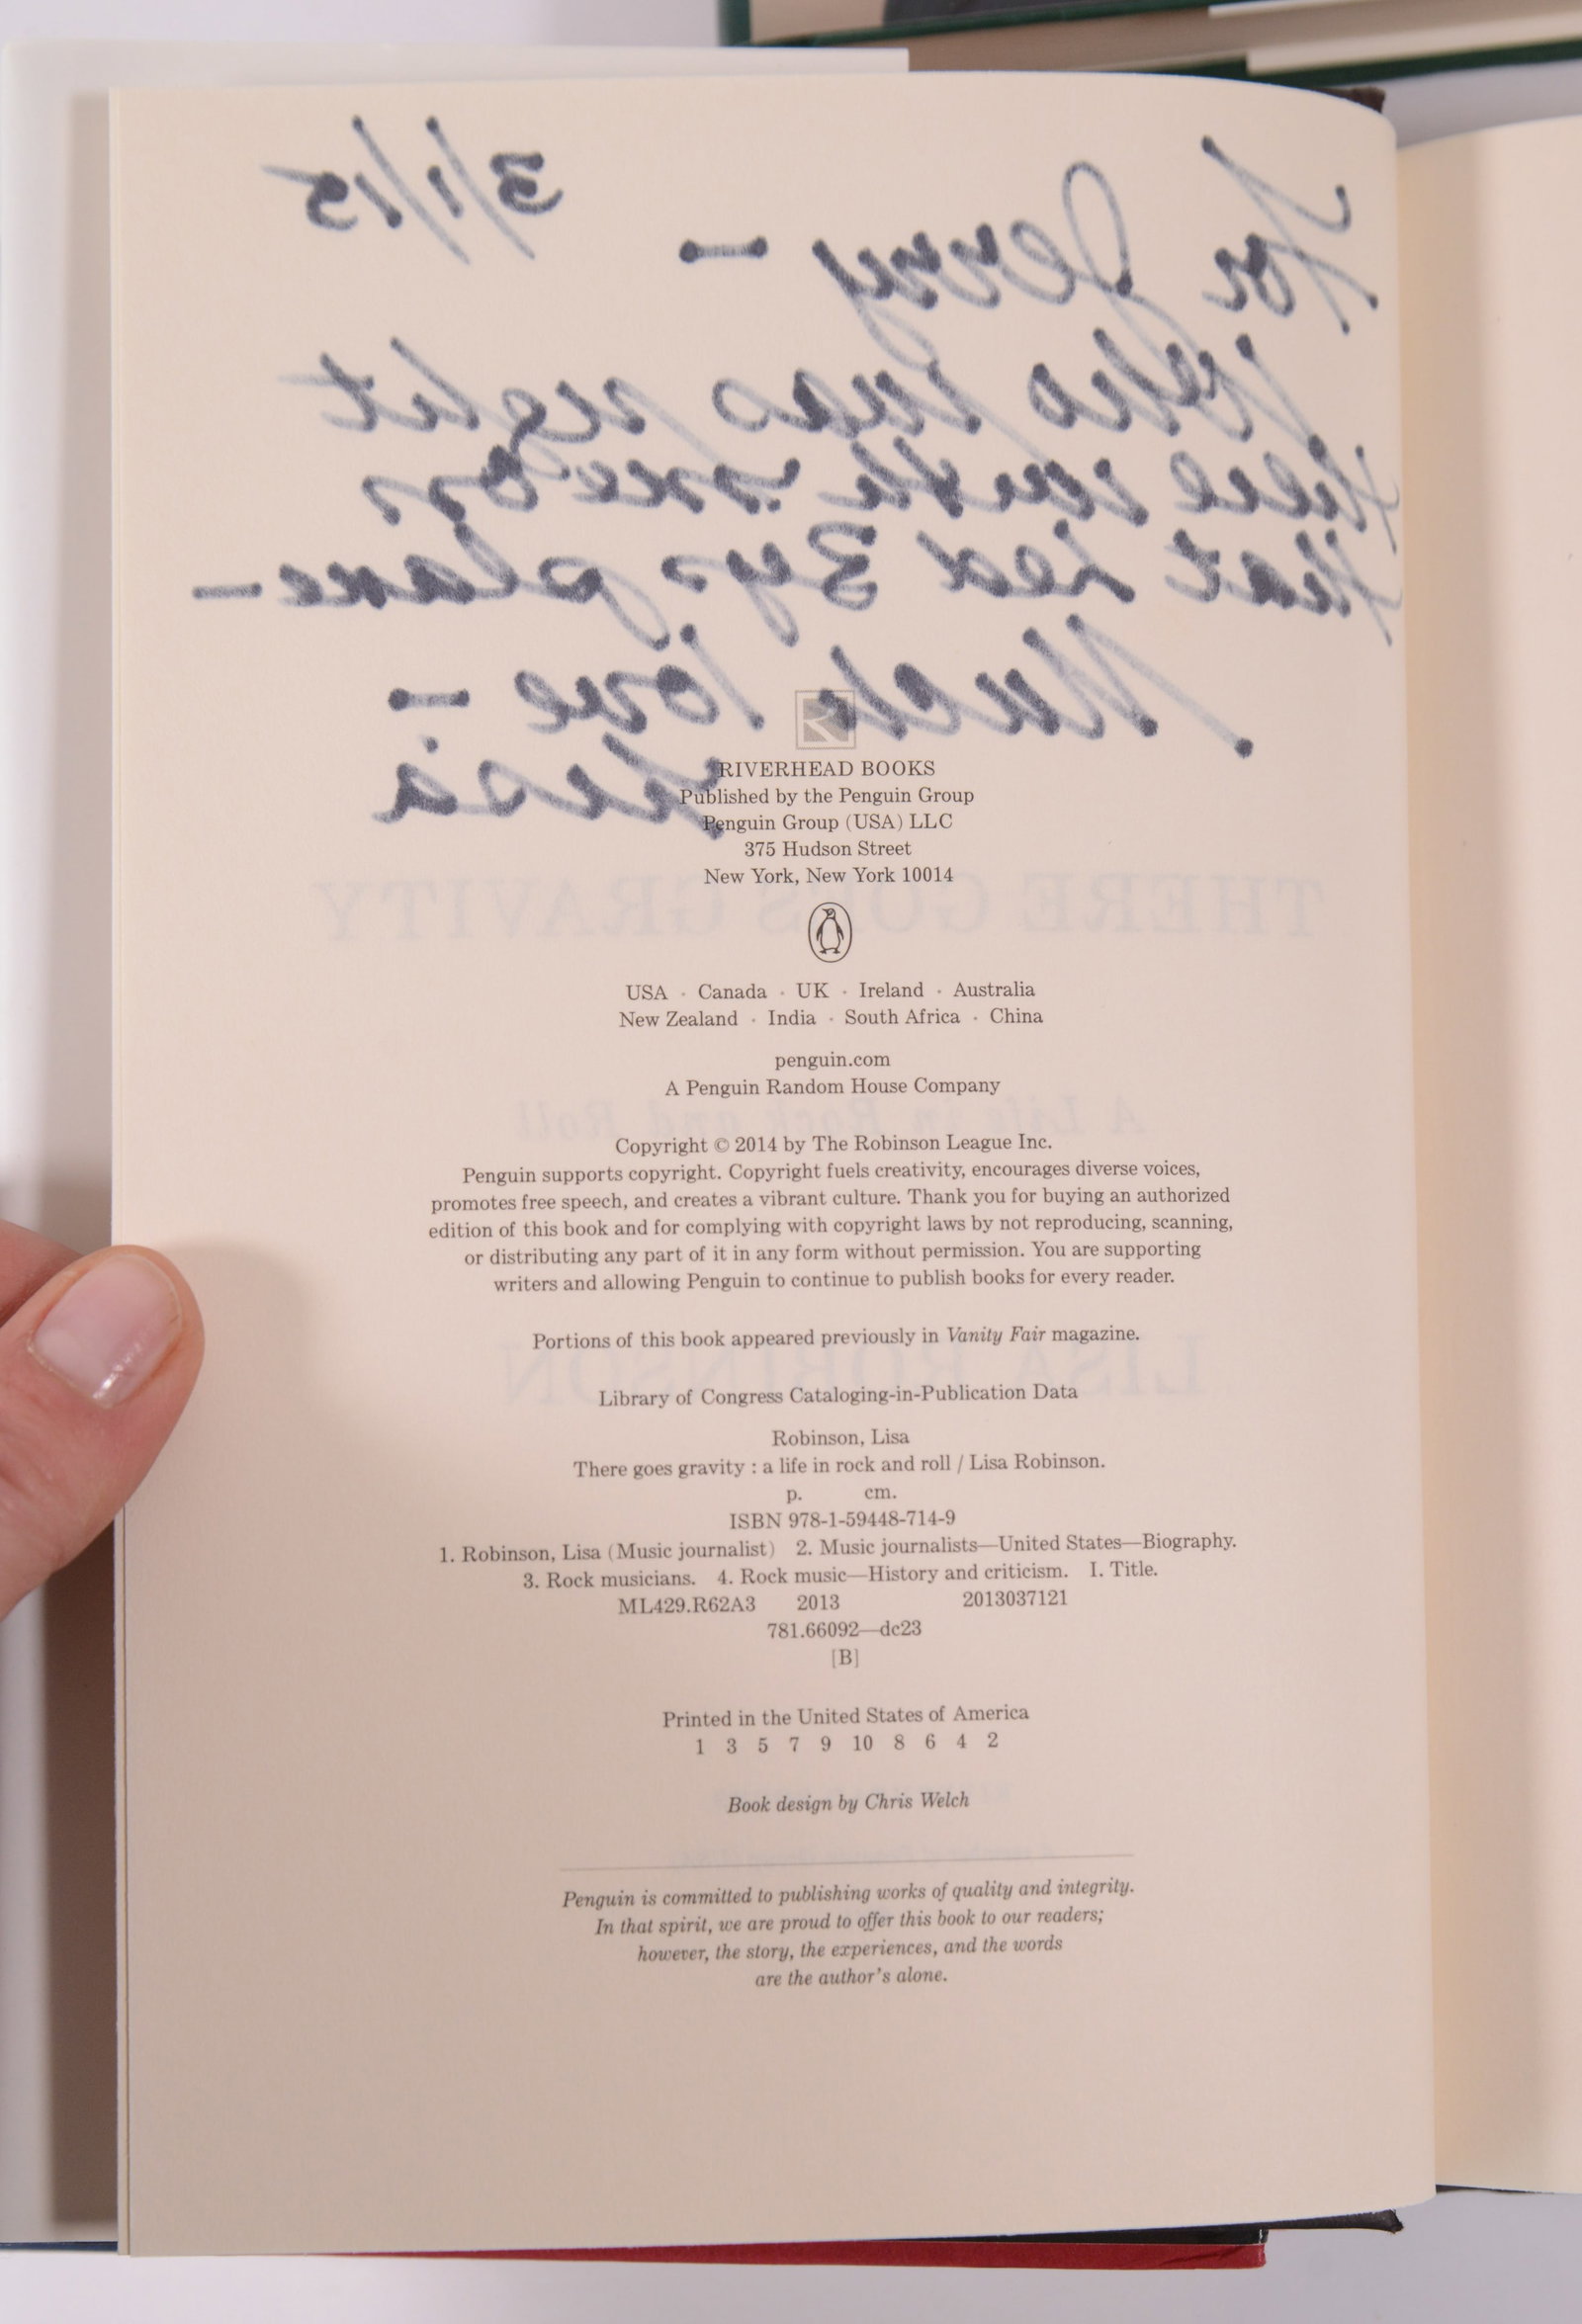 3/1/15
For Jerry —
Who was right
there with me on
that Led Zep. plane —
Much love —
Lisa
R
RIVERHEAD BOOKS
Published by the Penguin Group
Penguin Group (USA) LLC
375 Hudson Street
New York, New York 10014
THERE GOES GRAVITY
USA · Canada · UK · Ireland · Australia
New Zealand · India · South Africa · China
penguin.com
A Penguin Random House Company
A Life in Rock and Roll
Copyright © 2014 by The Robinson League Inc.
Penguin supports copyright. Copyright fuels creativity, encourages diverse voices,
promotes free speech, and creates a vibrant culture. Thank you for buying an authorized
edition of this book and for complying with copyright laws by not reproducing, scanning,
or distributing any part of it in any form without permission. You are supporting
writers and allowing Penguin to continue to publish books for every reader.
Portions of this book appeared previously in Vanity Fair magazine.
LISA ROBINSON
Library of Congress Cataloging-in-Publication Data
Robinson, Lisa
There goes gravity : a life in rock and roll / Lisa Robinson.
p. cm.
ISBN 978-1-59448-714-9
1. Robinson, Lisa (Music journalist) 2. Music journalists—United States—Biography.
3. Rock musicians. 4. Rock music—History and criticism. I. Title.
ML429.R62A3 2013 2013037121
781.66092—dc23
[B]
Printed in the United States of America
1 3 5 7 9 10 8 6 4 2
Book design by Chris Welch
Penguin is committed to publishing works of quality and integrity.
In that spirit, we are proud to offer this book to our readers;
however, the story, the experiences, and the words
are the author's alone.